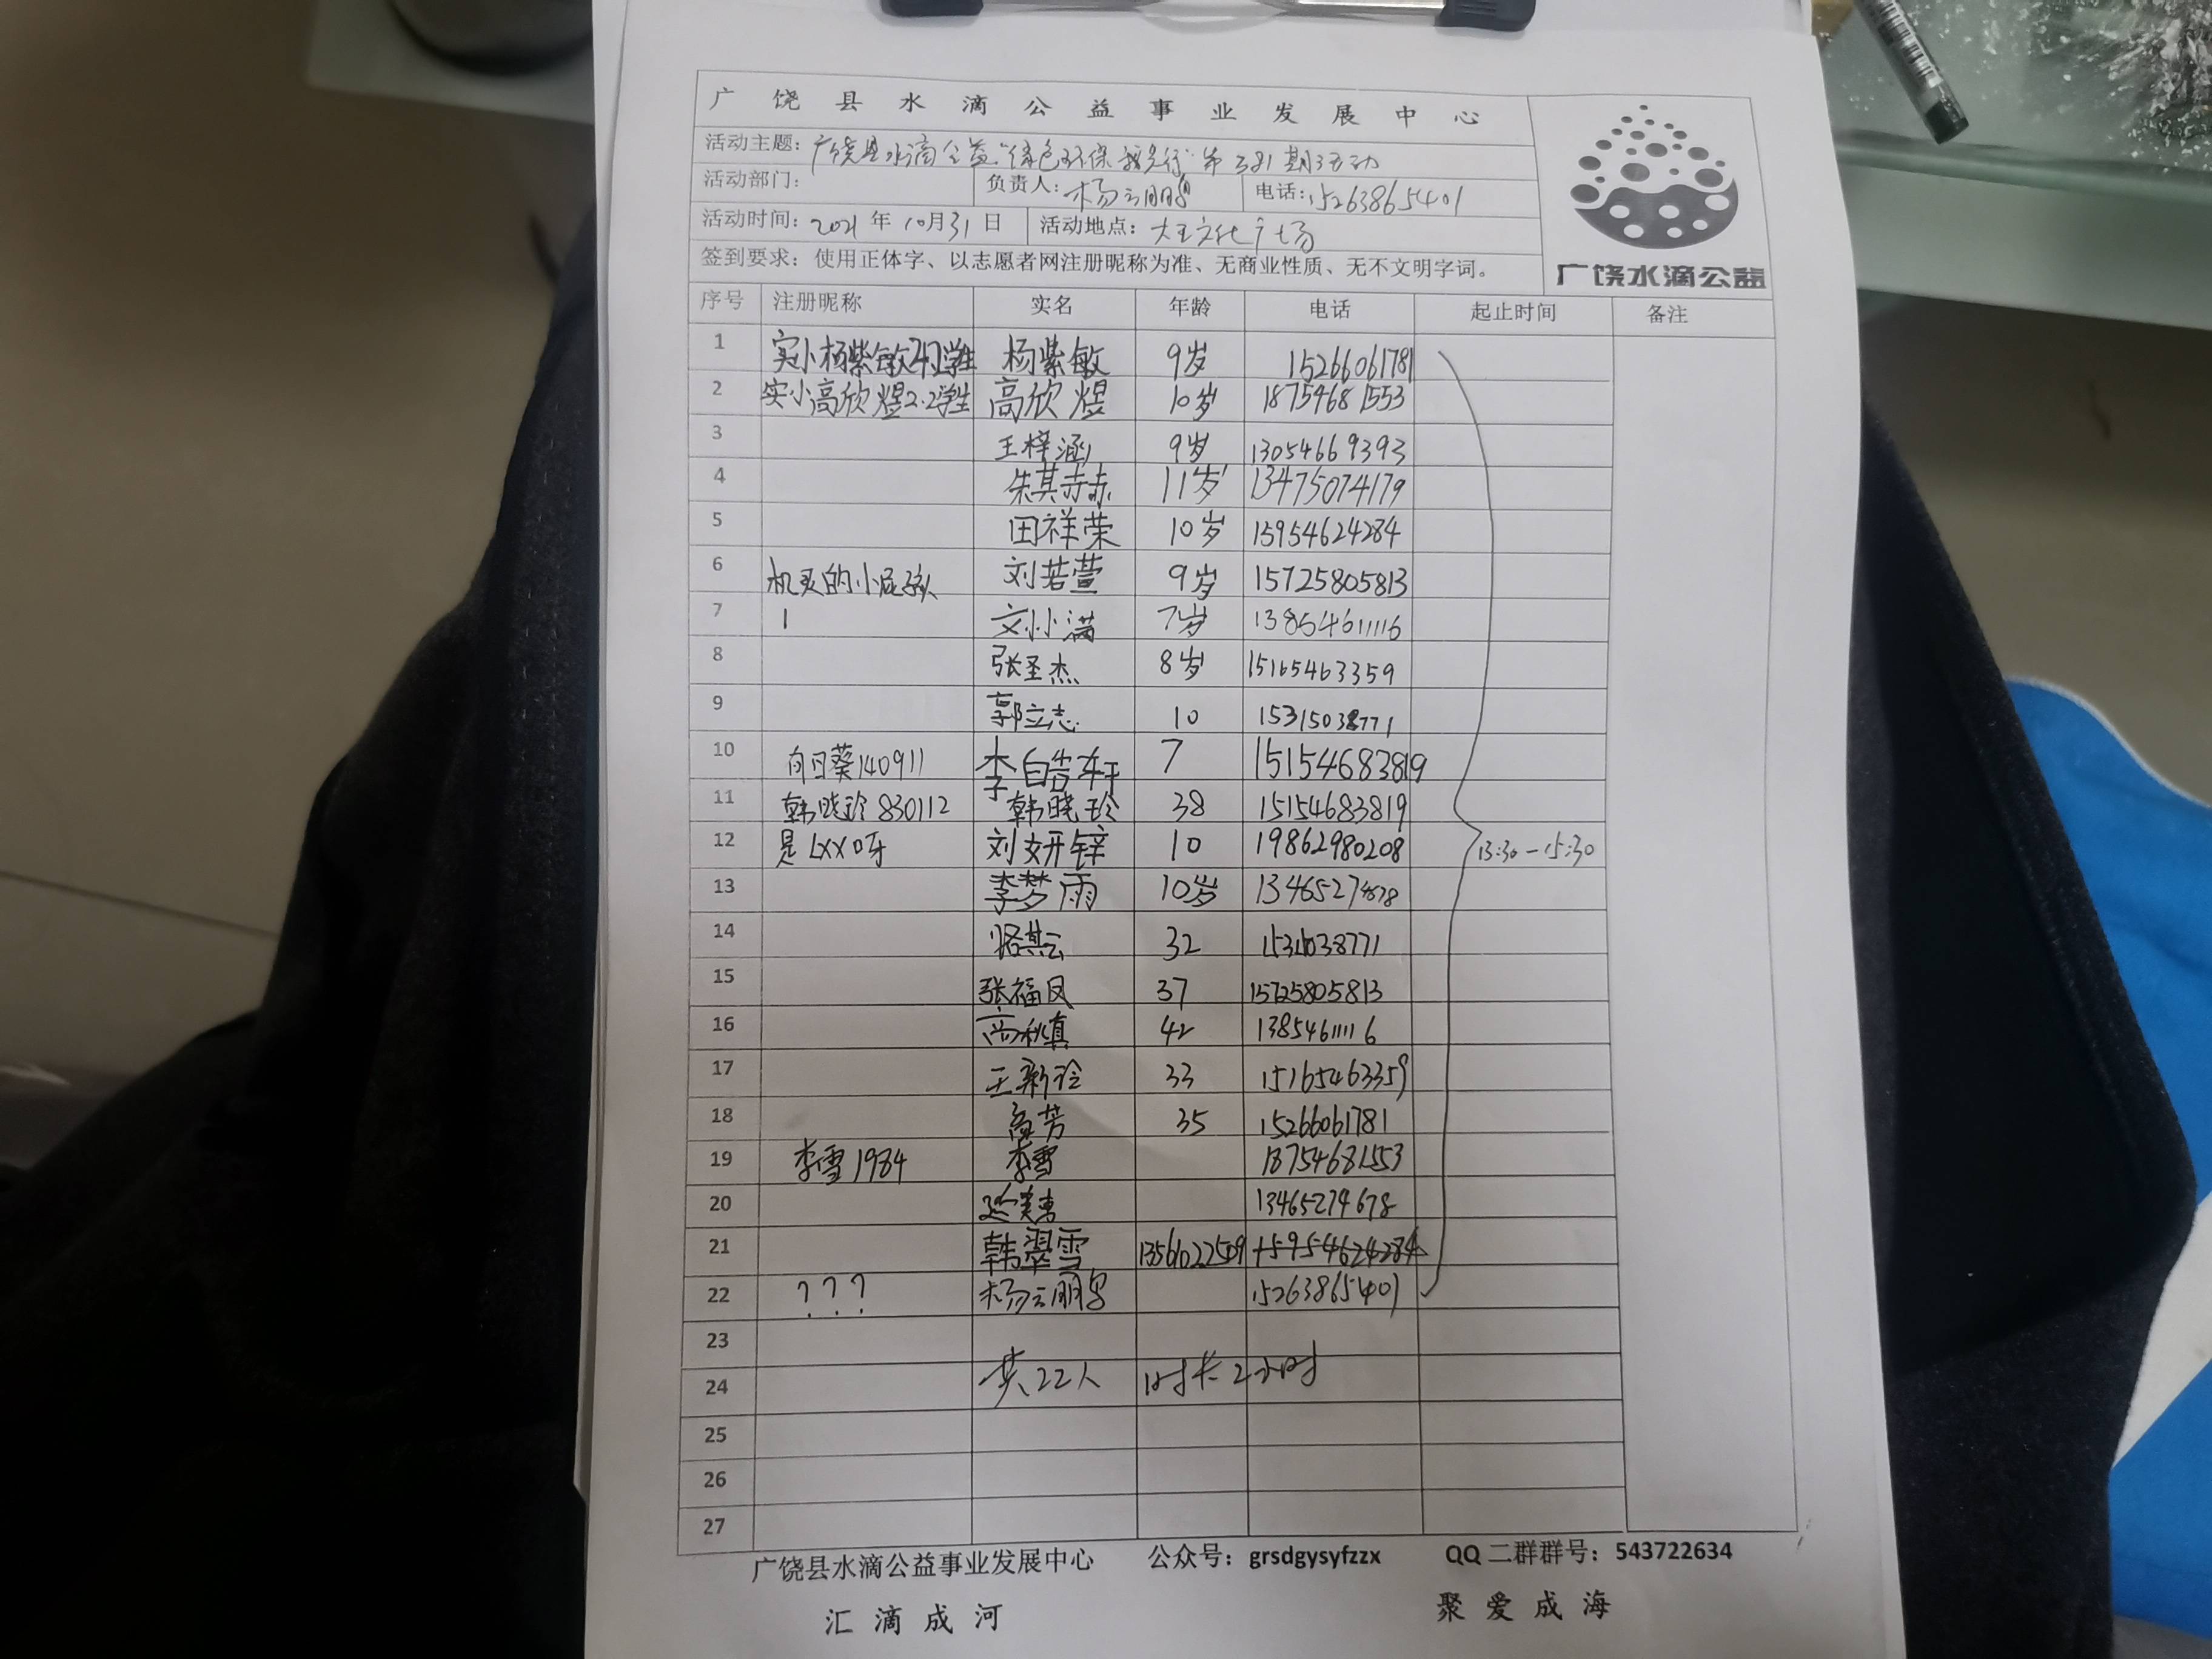 广饶县水滴公益事业发展中心
活动主题：广饶县水滴公益"绿色环保 我先行"第381期活动
活动部门： 负责人：杨云鹏 电话：15263865401
活动时间：2021年10月31日 活动地点：大王文化广场
签到要求：使用正体字、以志愿者网注册昵称为准、无商业性质、无不文明字词。
广饶水滴公益
序号 注册昵称 实名 年龄 电话 起止时间 备注
1 实小杨紫敏 学生 杨紫敏 9岁 15266061781
2 实小高欣煜2.2学生 高欣煜 10岁 18754681553
3 王梓涵 9岁 13054669393
4 朱其赫 11岁 13475074179
5 田祥荣 10岁 15954624284
6 机灵的小屁孩 刘若萱 9岁 15725805813
7 1 刘小满 7岁 13854611116
8 张圣杰 8岁 15165463359
9 郭立志 10 15315038771
10 向日葵140911 李皓轩 7 15154683819
11 韩晓玲830112 韩晓玲 38 15154683819
12 是LXX呀 刘妍锌 10 19862980208 13:30-15:30
13 李梦雨 10岁 13465274678
14 其云 32 15315038771
15 张福凤 37 15725805813
16 高秋真 42 13854611116
17 王新玲 33 15165463359
18 高芳 35 15266061781
19 李雪1984 李雪 18754681553
20 13465274678
21 韩翠雪 13561022509 15954624284
22 ？？？ 杨云鹏 15263865401
23
24 共22人 时长2小时
25
26
27
广饶县水滴公益事业发展中心 公众号：grsdgysyfzzx QQ二群群号：543722634
汇滴成河 聚爱成海